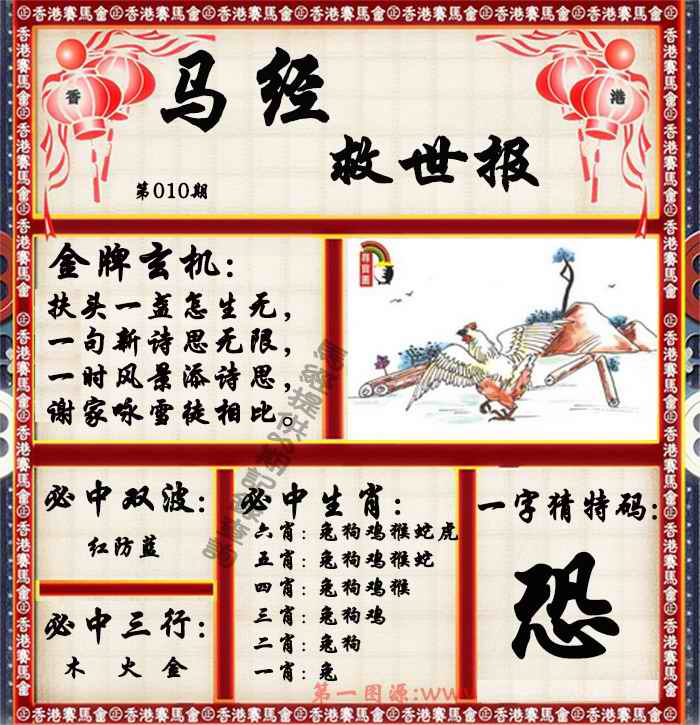 香港賽馬會
香
港
马经
救世报
第010期
金牌玄机：
扶头一盏怎生无，
一句新诗思无限，
一时风景添诗思，
谢家咏雪徒相比。
必中双波：
红防蓝
必中三行：
木 火 金
必中生肖：
六肖：兔狗鸡猴蛇虎
五肖：兔狗鸡猴蛇
四肖：兔狗鸡猴
三肖：兔狗鸡
二肖：兔狗
一肖：兔
一字猜特码：
恐
第一图源:www